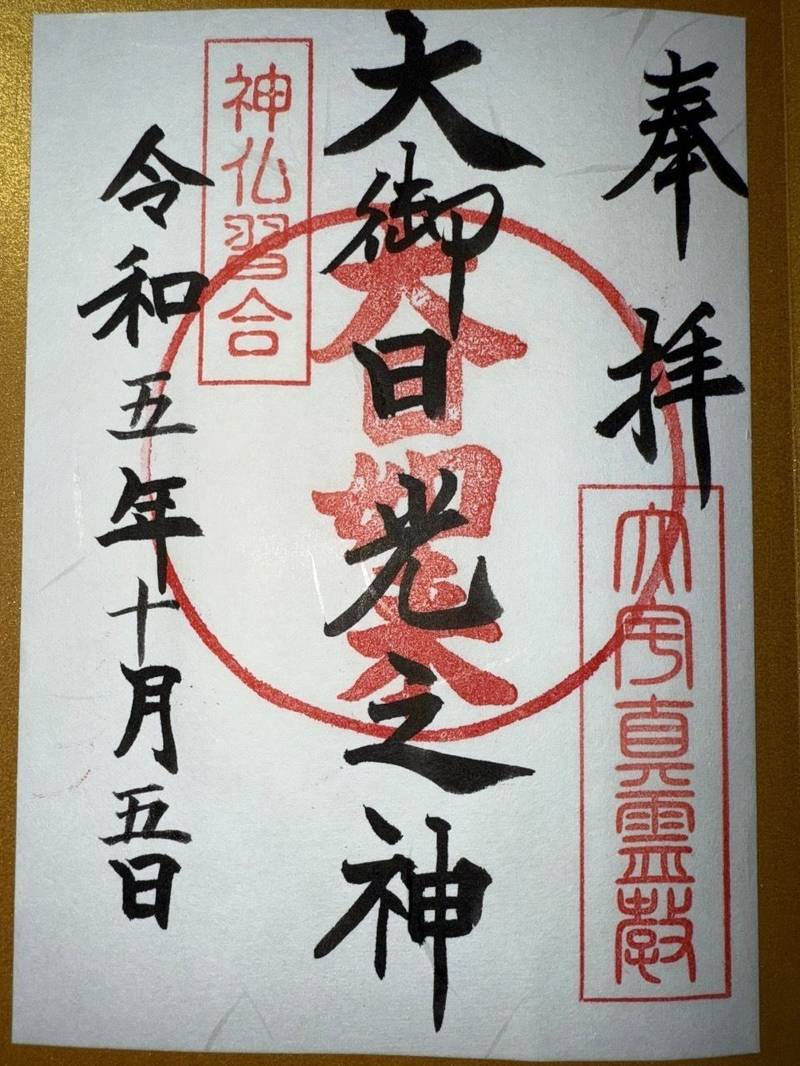 奉拝
真霊教
大御日光之神
神仏習合
令和五年十月五日